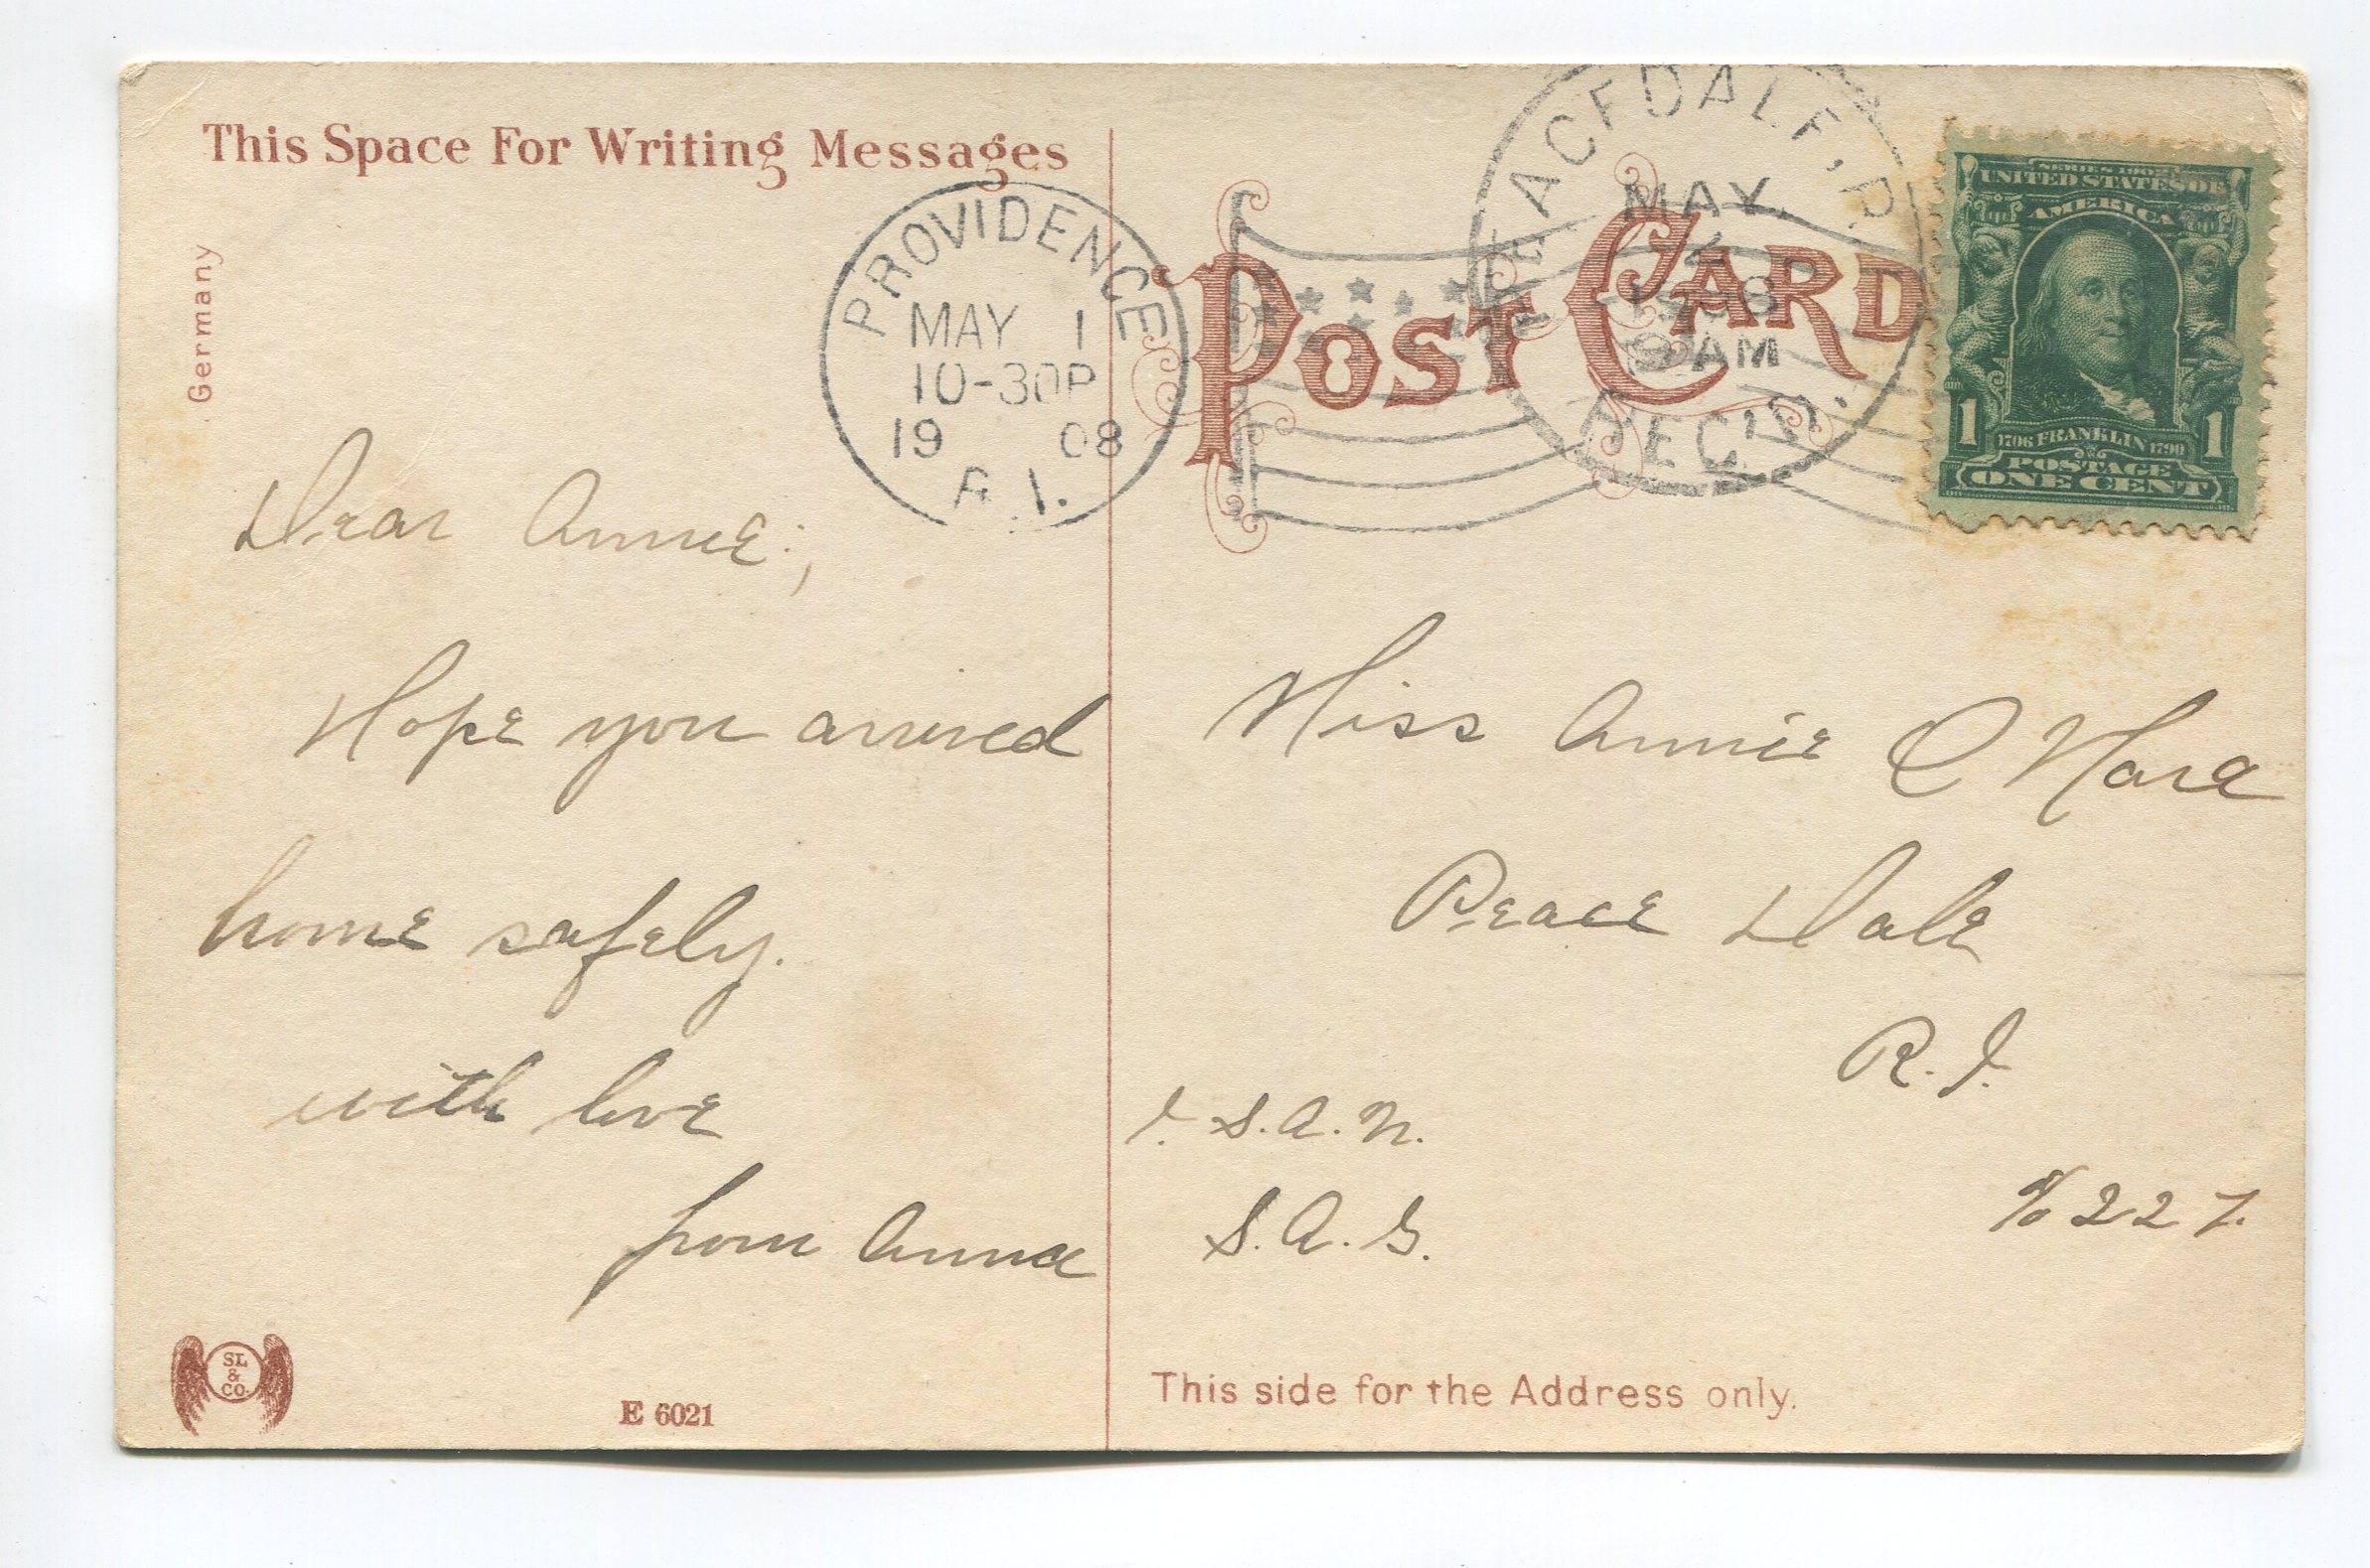 This Space For Writing Messages
Germany
PROVIDENCE
MAY 1
10-30P
19 08
R.I.
Dear Annie;,
Hope you arrived
home safely.
with love
from Anna
SL
&
CO.
E 6021
POST CARD
PEACEDALE, R
MAY
1908
9 AM
REC'D.
SERIES 1902
UNITED STATES OF
AMERICA
1 1
1706 FRANKLIN 1790
POSTAGE
ONE CENT
Miss Annie O Hara
Peace Dale
R.I.
S.A.N.
S.A.G.
% 227.
This side for the Address only.